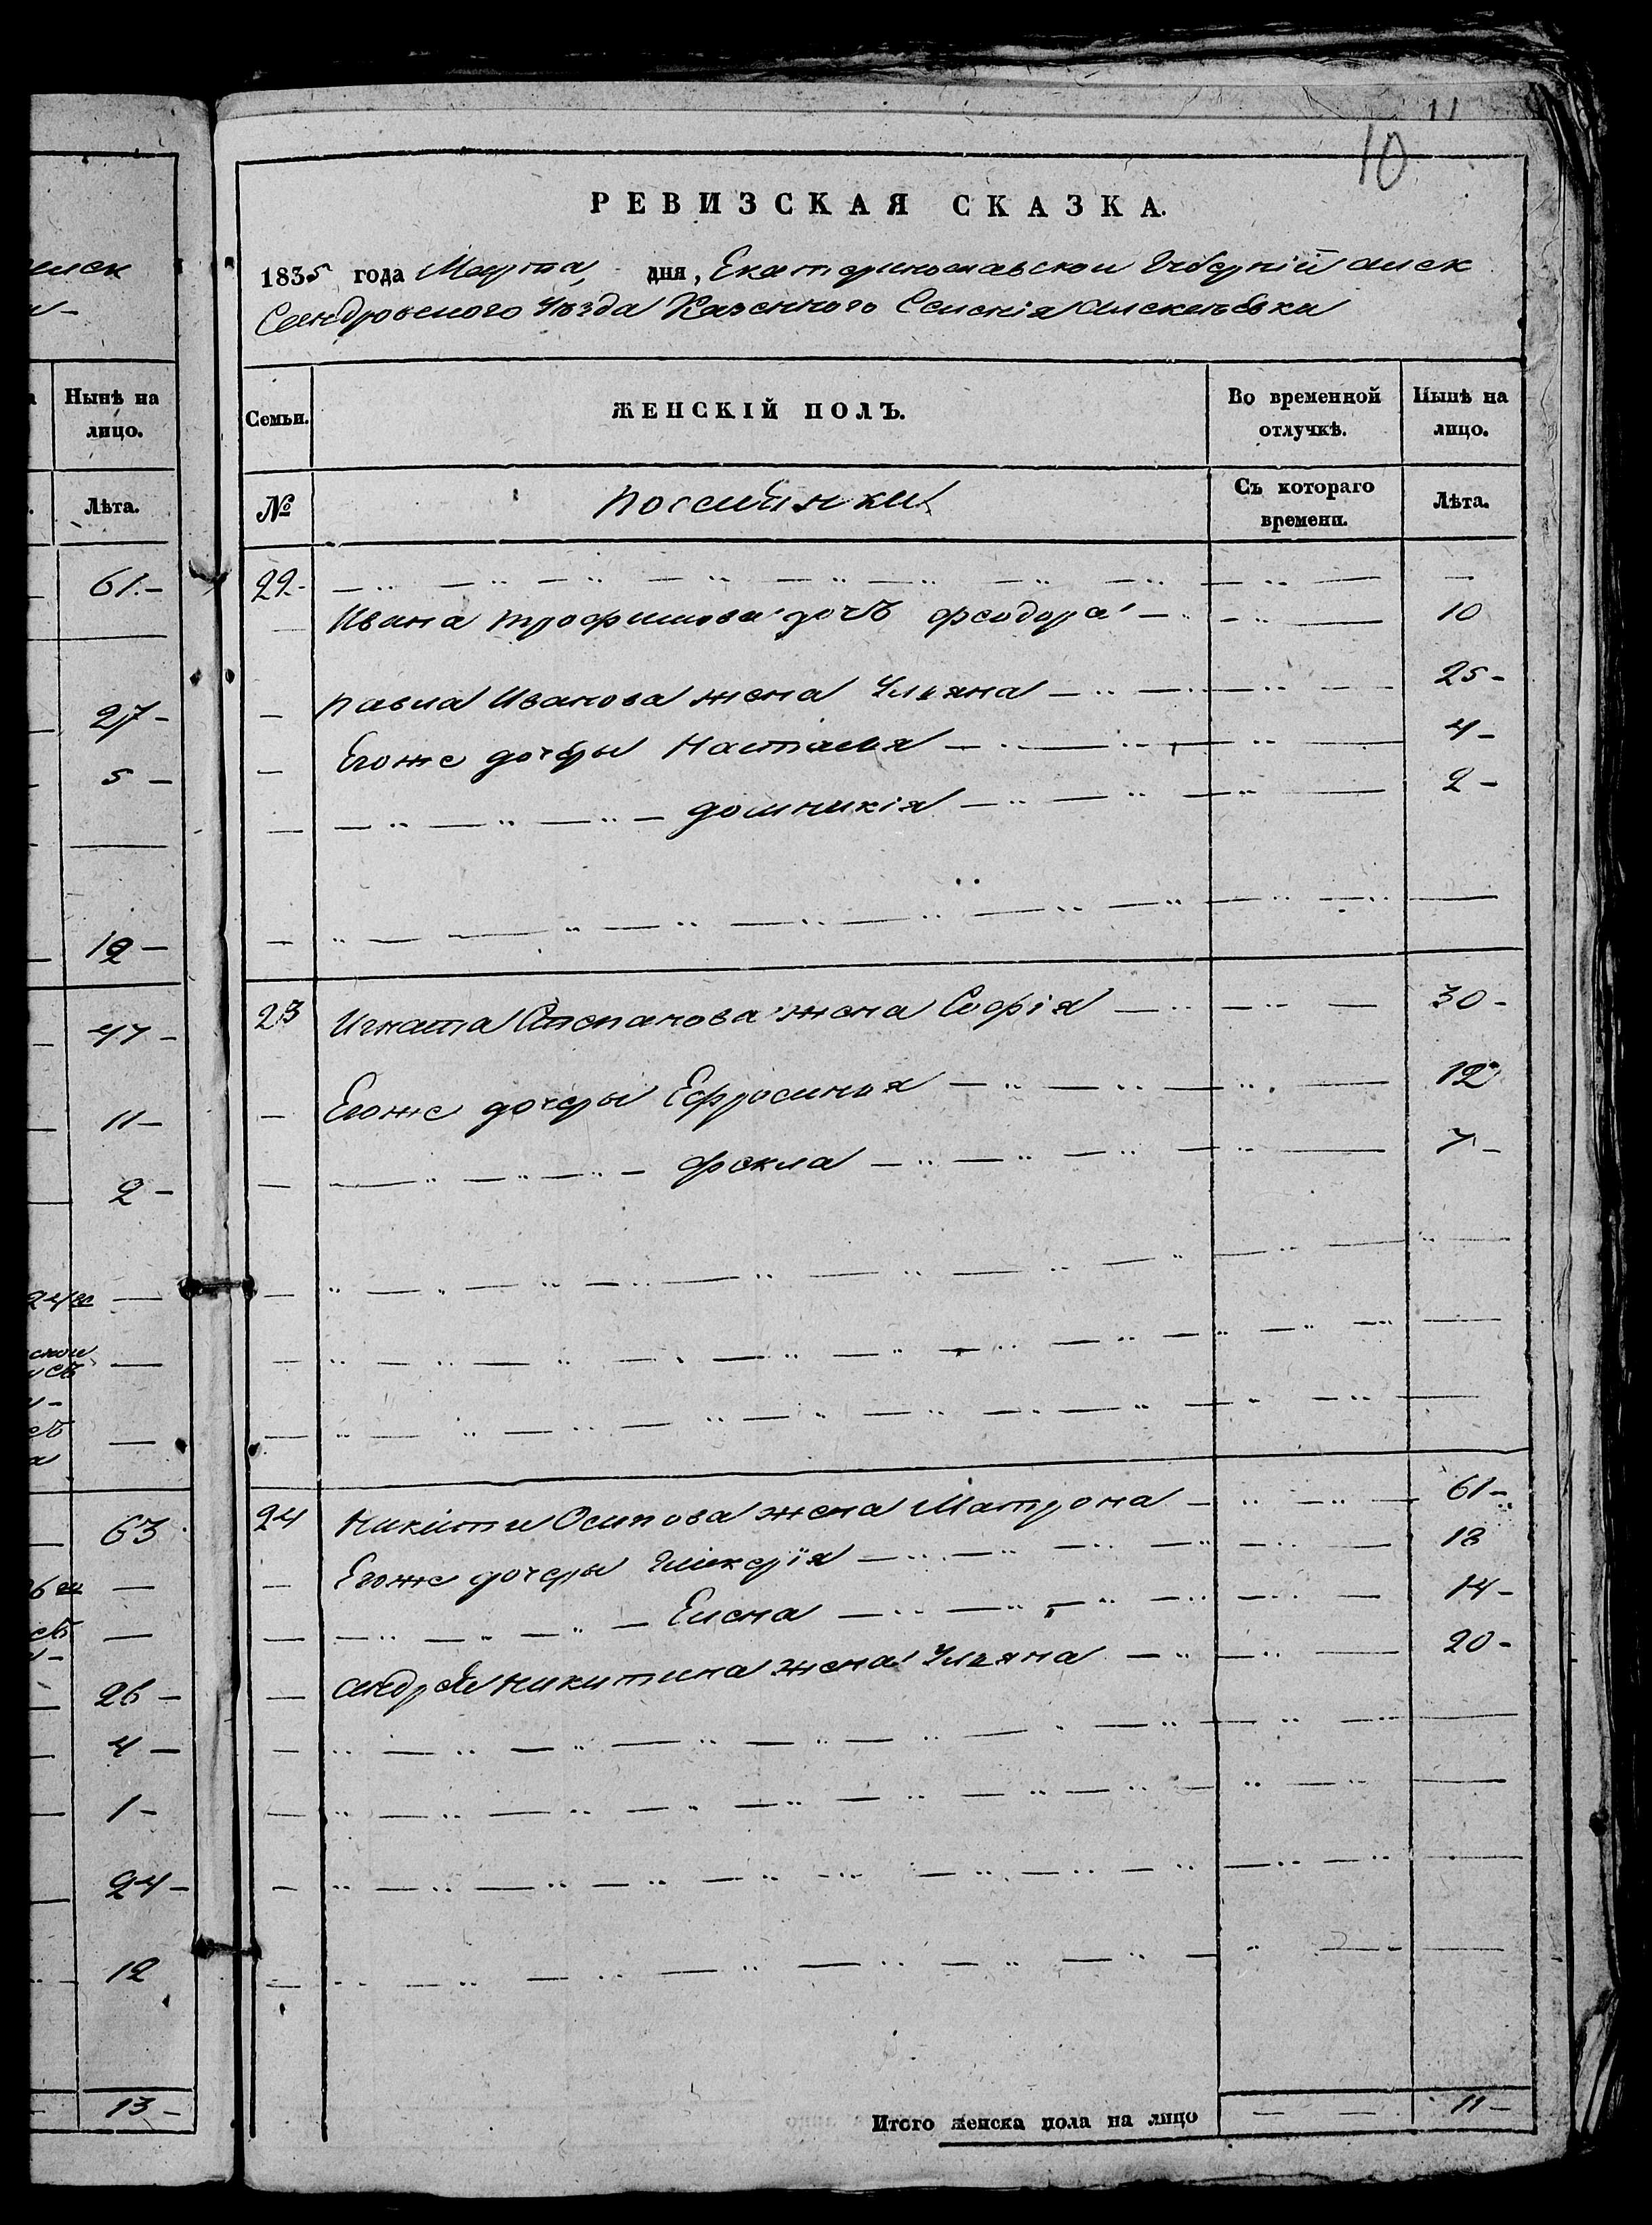 11
10
РЕВИЗСКАЯ СКАЗКА.
1835 года Марта, дня, Екатеринославской Губерніи Алек
Сандровскаго Уѣзда Казеннаго Селенія Алексѣевки
Нынѣ на
лицо.
Лѣта.
61.-
27-
5-
12-
47-
11-
2-
63
26-
4-
1-
24-
12
13-
Семьи. ЖЕНСКІЙ ПОЛЪ. Во временной отлучкѣ. Нынѣ на лицо.
№ Съ котораго времени. Лѣта.
22-
Ивана Трофимова дочь Феодора 10
Павла Иванова жена Ульяна 25-
Егоже дочеры Наталья 4-
Домникія 2-
23 Игната Степанова жена Софія 30-
Егоже дочеры Ефросинья 12
Фекла 7-
24 Никиты Осипова жена Матрона 61-
Егоже дочеры Гликерія 18
Елена 14-
Андрея Никитина жена Ульяна 20-
Итого женска пола на лицо 11-